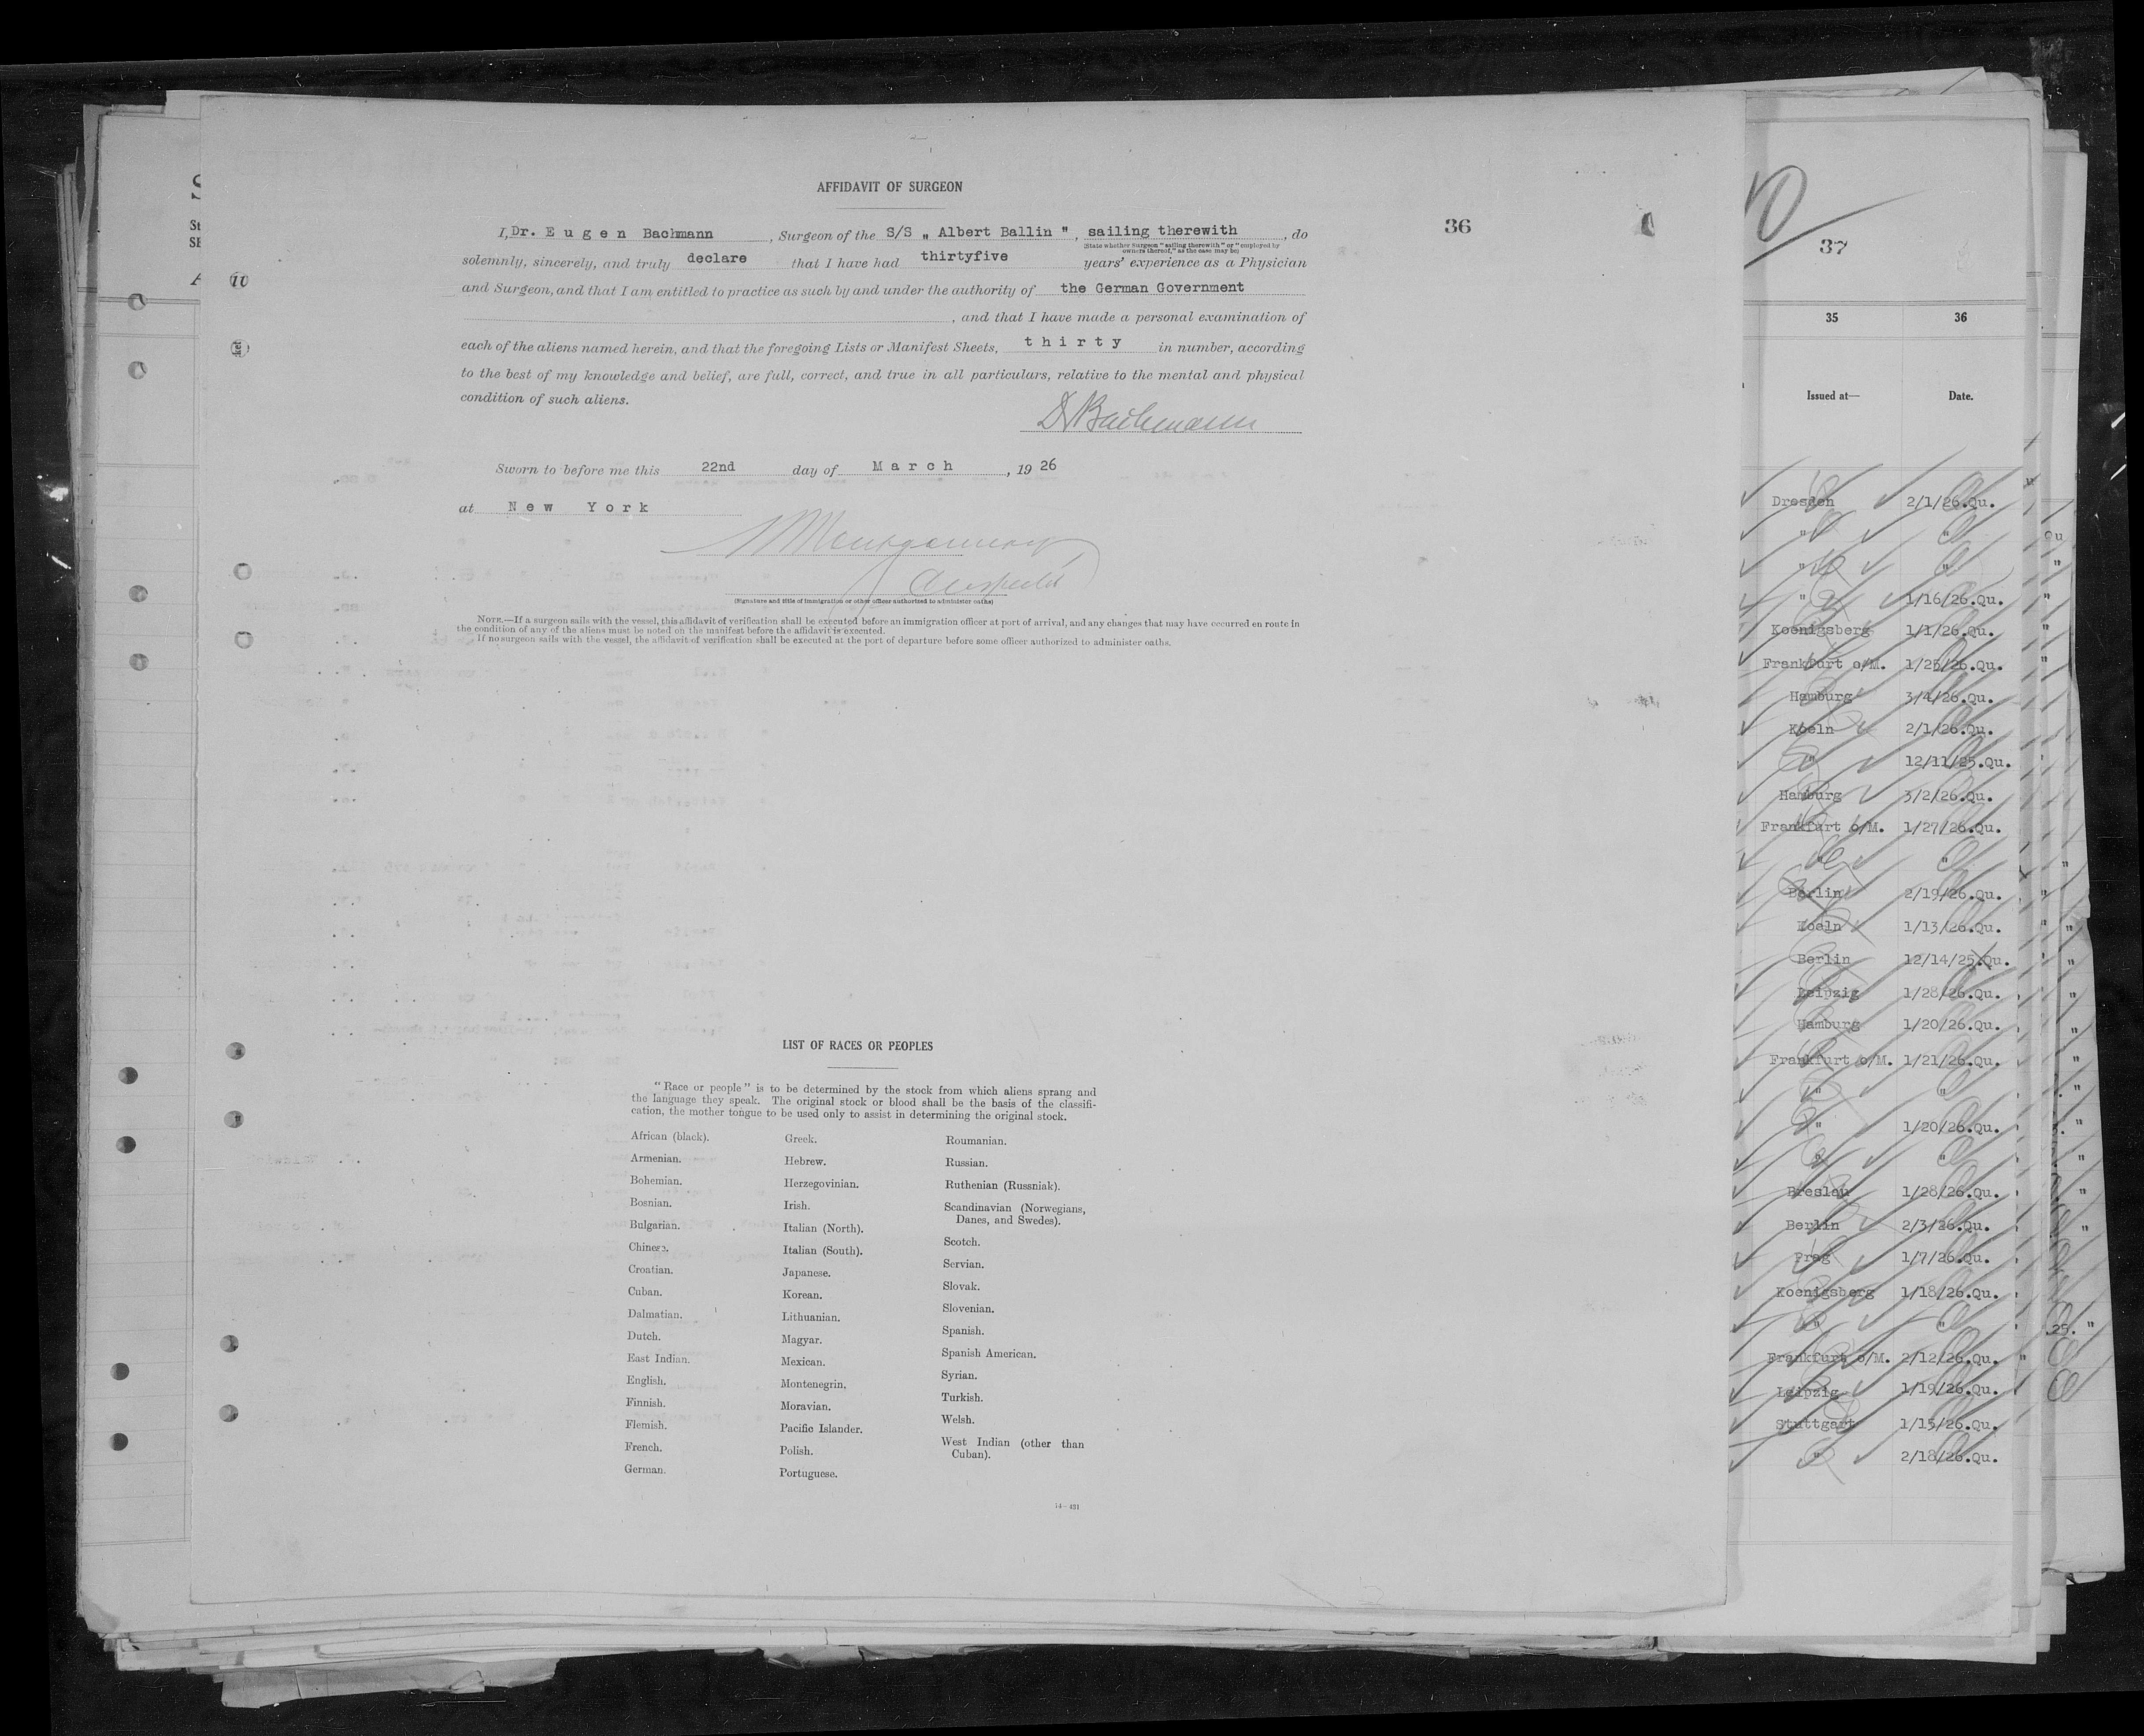 AFFIDAVIT OF SURGEON
36
I, Dr. E u g e n Bachmann, Surgeon of the S/S „ Albert Ballin ", sailing therewith, do
(State whether Surgeon "sailing therewith" or "employed by
owners thereof," as the case may be)
solemnly, sincerely, and truly declare that I have had thirtyfive years' experience as a Physician
and Surgeon, and that I am entitled to practice as such by and under the authority of the German Government
, and that I have made a personal examination of
each of the aliens named herein, and that the foregoing Lists or Manifest Sheets, t h i r t y in number, according
to the best of my knowledge and belief, are full, correct, and true in all particulars, relative to the mental and physical
condition of such aliens.
Dr Bachmann
Sworn to before me this 22nd day of M a r c h, 19 26
at N e w Y o r k
Montgomery
(Signature and title of immigration or other officer authorized to administer oaths)
NOTE.—If a surgeon sails with the vessel, this affidavit of verification shall be executed before an immigration officer at port of arrival, and any changes that may have occurred en route in
the condition of any of the aliens must be noted on the manifest before the affidavit is executed.
If no surgeon sails with the vessel, the affidavit of verification shall be executed at the port of departure before some officer authorized to administer oaths.
LIST OF RACES OR PEOPLES
"Race or people" is to be determined by the stock from which aliens sprang and
the language they speak. The original stock or blood shall be the basis of the classifi-
cation, the mother tongue to be used only to assist in determining the original stock.
African (black).
Armenian.
Bohemian.
Bosnian.
Bulgarian.
Chinese.
Croatian.
Cuban.
Dalmatian.
Dutch.
East Indian.
English.
Finnish.
Flemish.
French.
German.
Greek.
Hebrew.
Herzegovinian.
Irish.
Italian (North).
Italian (South).
Japanese.
Korean.
Lithuanian.
Magyar.
Mexican.
Montenegrin.
Moravian.
Pacific Islander.
Polish.
Portuguese.
Roumanian.
Russian.
Ruthenian (Russniak).
Scandinavian (Norwegians,
Danes, and Swedes).
Scotch.
Servian.
Slovak.
Slovenian.
Spanish.
Spanish American.
Syrian.
Turkish.
Welsh.
West Indian (other than
Cuban).
14—431
37
35 36
Issued at— Date.
Dresden 2/1/26.Qu.
" "
" "
" 1/16/26.Qu.
Koenigsberg 1/1/26.Qu.
Frankfurt o/M. 1/25/26.Qu.
Hamburg 3/4/26.Qu.
Koeln 2/1/26.Qu.
" 12/11/25.Qu.
Hamburg 3/2/26.Qu.
Frankfurt o/M. 1/27/26.Qu.
" "
Berlin 2/19/26.Qu.
Koeln 1/13/26.Qu.
Berlin 12/14/25.Qu.
Leipzig 1/28/26.Qu.
Hamburg 1/20/26.Qu.
Frankfurt o/M. 1/21/26.Qu.
" "
" 1/20/26.Qu.
" "
Breslau 1/28/26.Qu.
Berlin 2/3/26.Qu.
Prag 1/7/26.Qu.
Koenigsberg 1/18/26.Qu.
" "
Frankfurt o/M. 2/12/26.Qu.
Leipzig 1/19/26.Qu.
Stuttgart 1/15/26.Qu.
" 2/18/26.Qu.